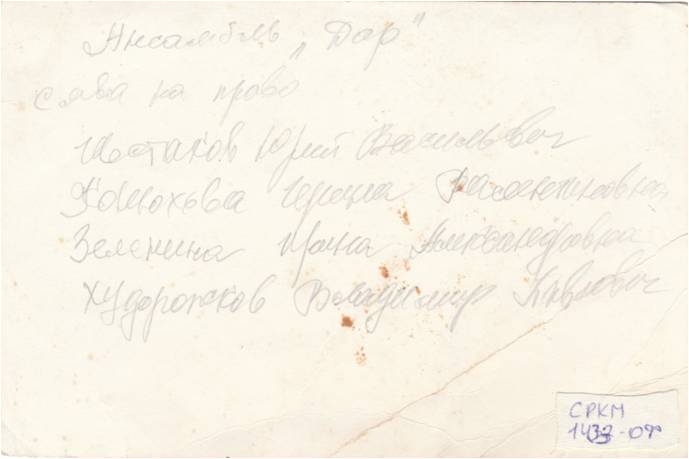 Ансамбль „Дар"
с лева на право
Шестаков Юрий Васильевич
Конюхова Ирина
Зеленина Ирина Александровна
Худорожков Владимир Павлович
СРКМ
1433-09